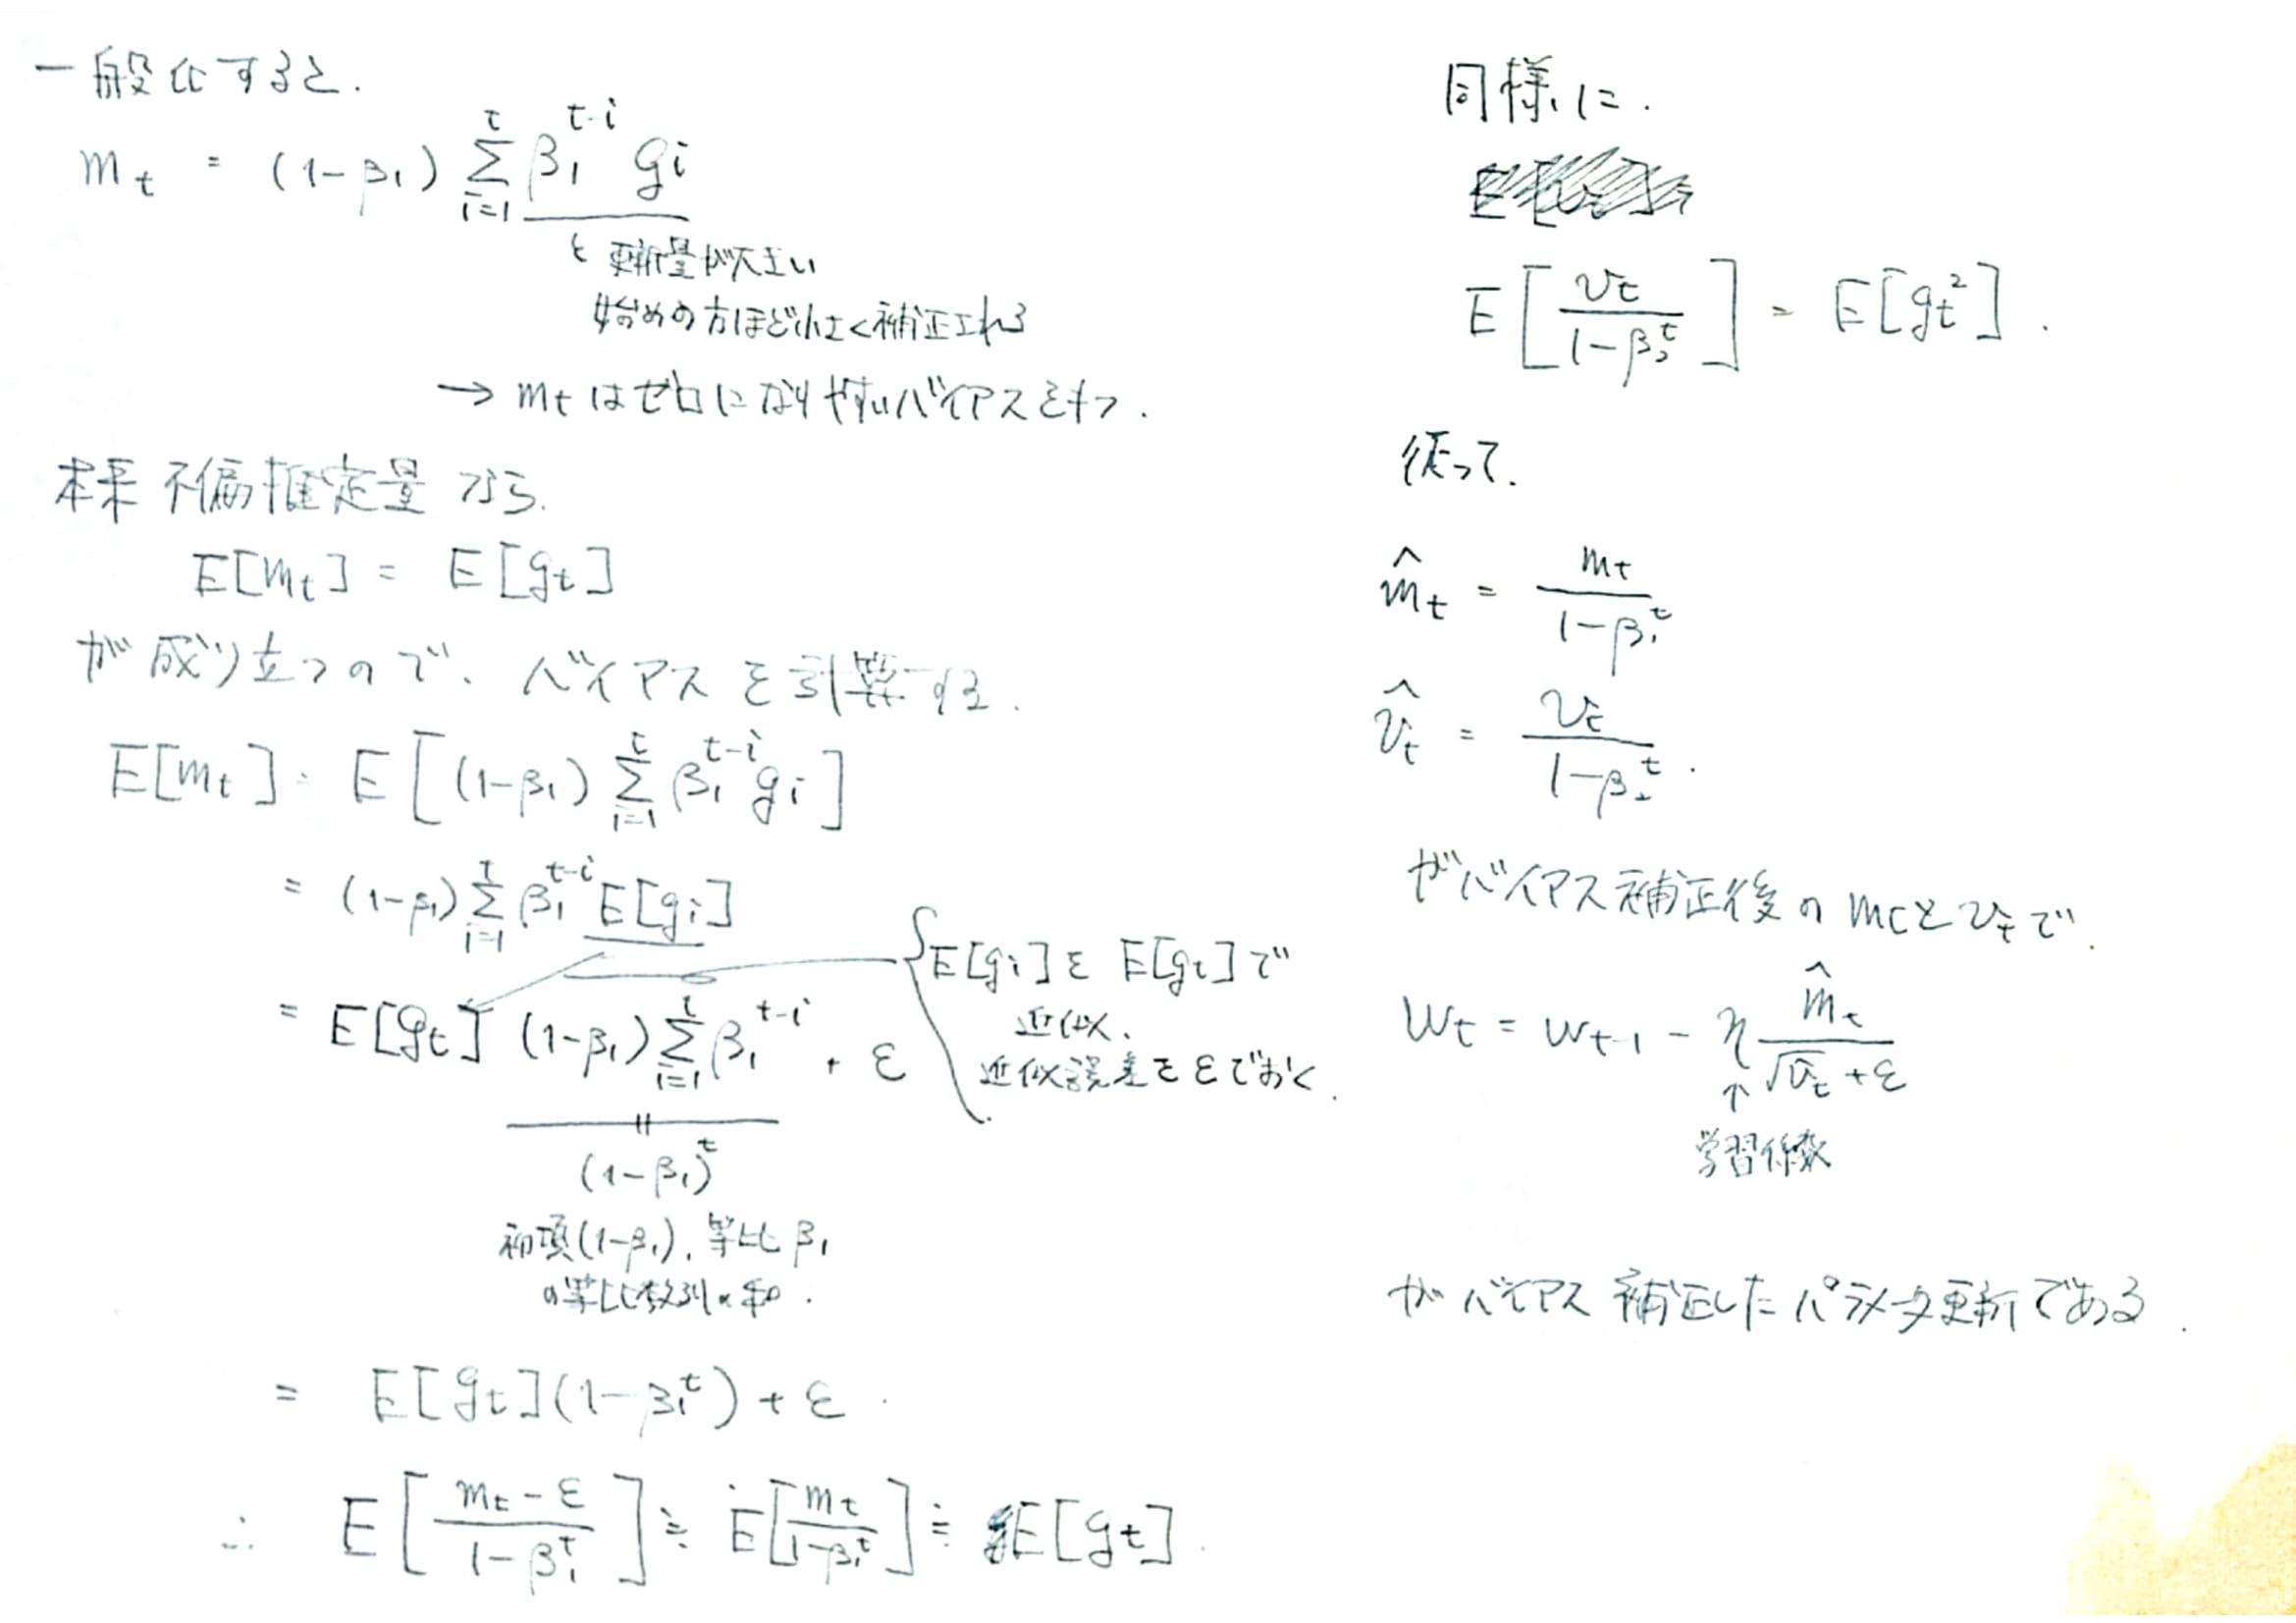 一般化すると.
m_t = (1-β_1) Σ_{i=1}^{t} β_1^{t-i} g_i
更新量が大きい
始めの方ほど小さく補正される
→ m_t はゼロになりやすいバイアスをもつ.
本来 不偏推定量 なら.
E[m_t] = E[g_t]
が成り立つので、バイアスを計算する.
E[m_t] = E[(1-β_1) Σ_{i=1}^{t} β_1^{t-i} g_i]
= (1-β_1) Σ_{i=1}^{t} β_1^{t-i} E[g_i]
= E[g_t] (1-β_1) Σ_{i=1}^{t} β_1^{t-i} + ε
E[g_i]を E[g_t]で
近似、
近似誤差をεでおく.
(1-β_1)^t
初項(1-β_1), 等比 β_1
の等比数列の和.
= E[g_t](1-β_1^t) + ε.
∴ E[(m_t - ε)/(1-β_1^t)] ≒ E[m_t/(1-β_1^t)] ≒ E[g_t].
同様に.
E[v_t/(1-β_2^t)] = E[g_t^2].
従って.
m̂_t = m_t/(1-β_1^t)
v̂_t = v_t/(1-β_2^t).
がバイアス補正後の m_tとv_tで.
w_t = w_{t-1} - η m̂_t/(√v̂_t + ε)
↑
学習係数
がバイアス補正したパラメータ更新である.